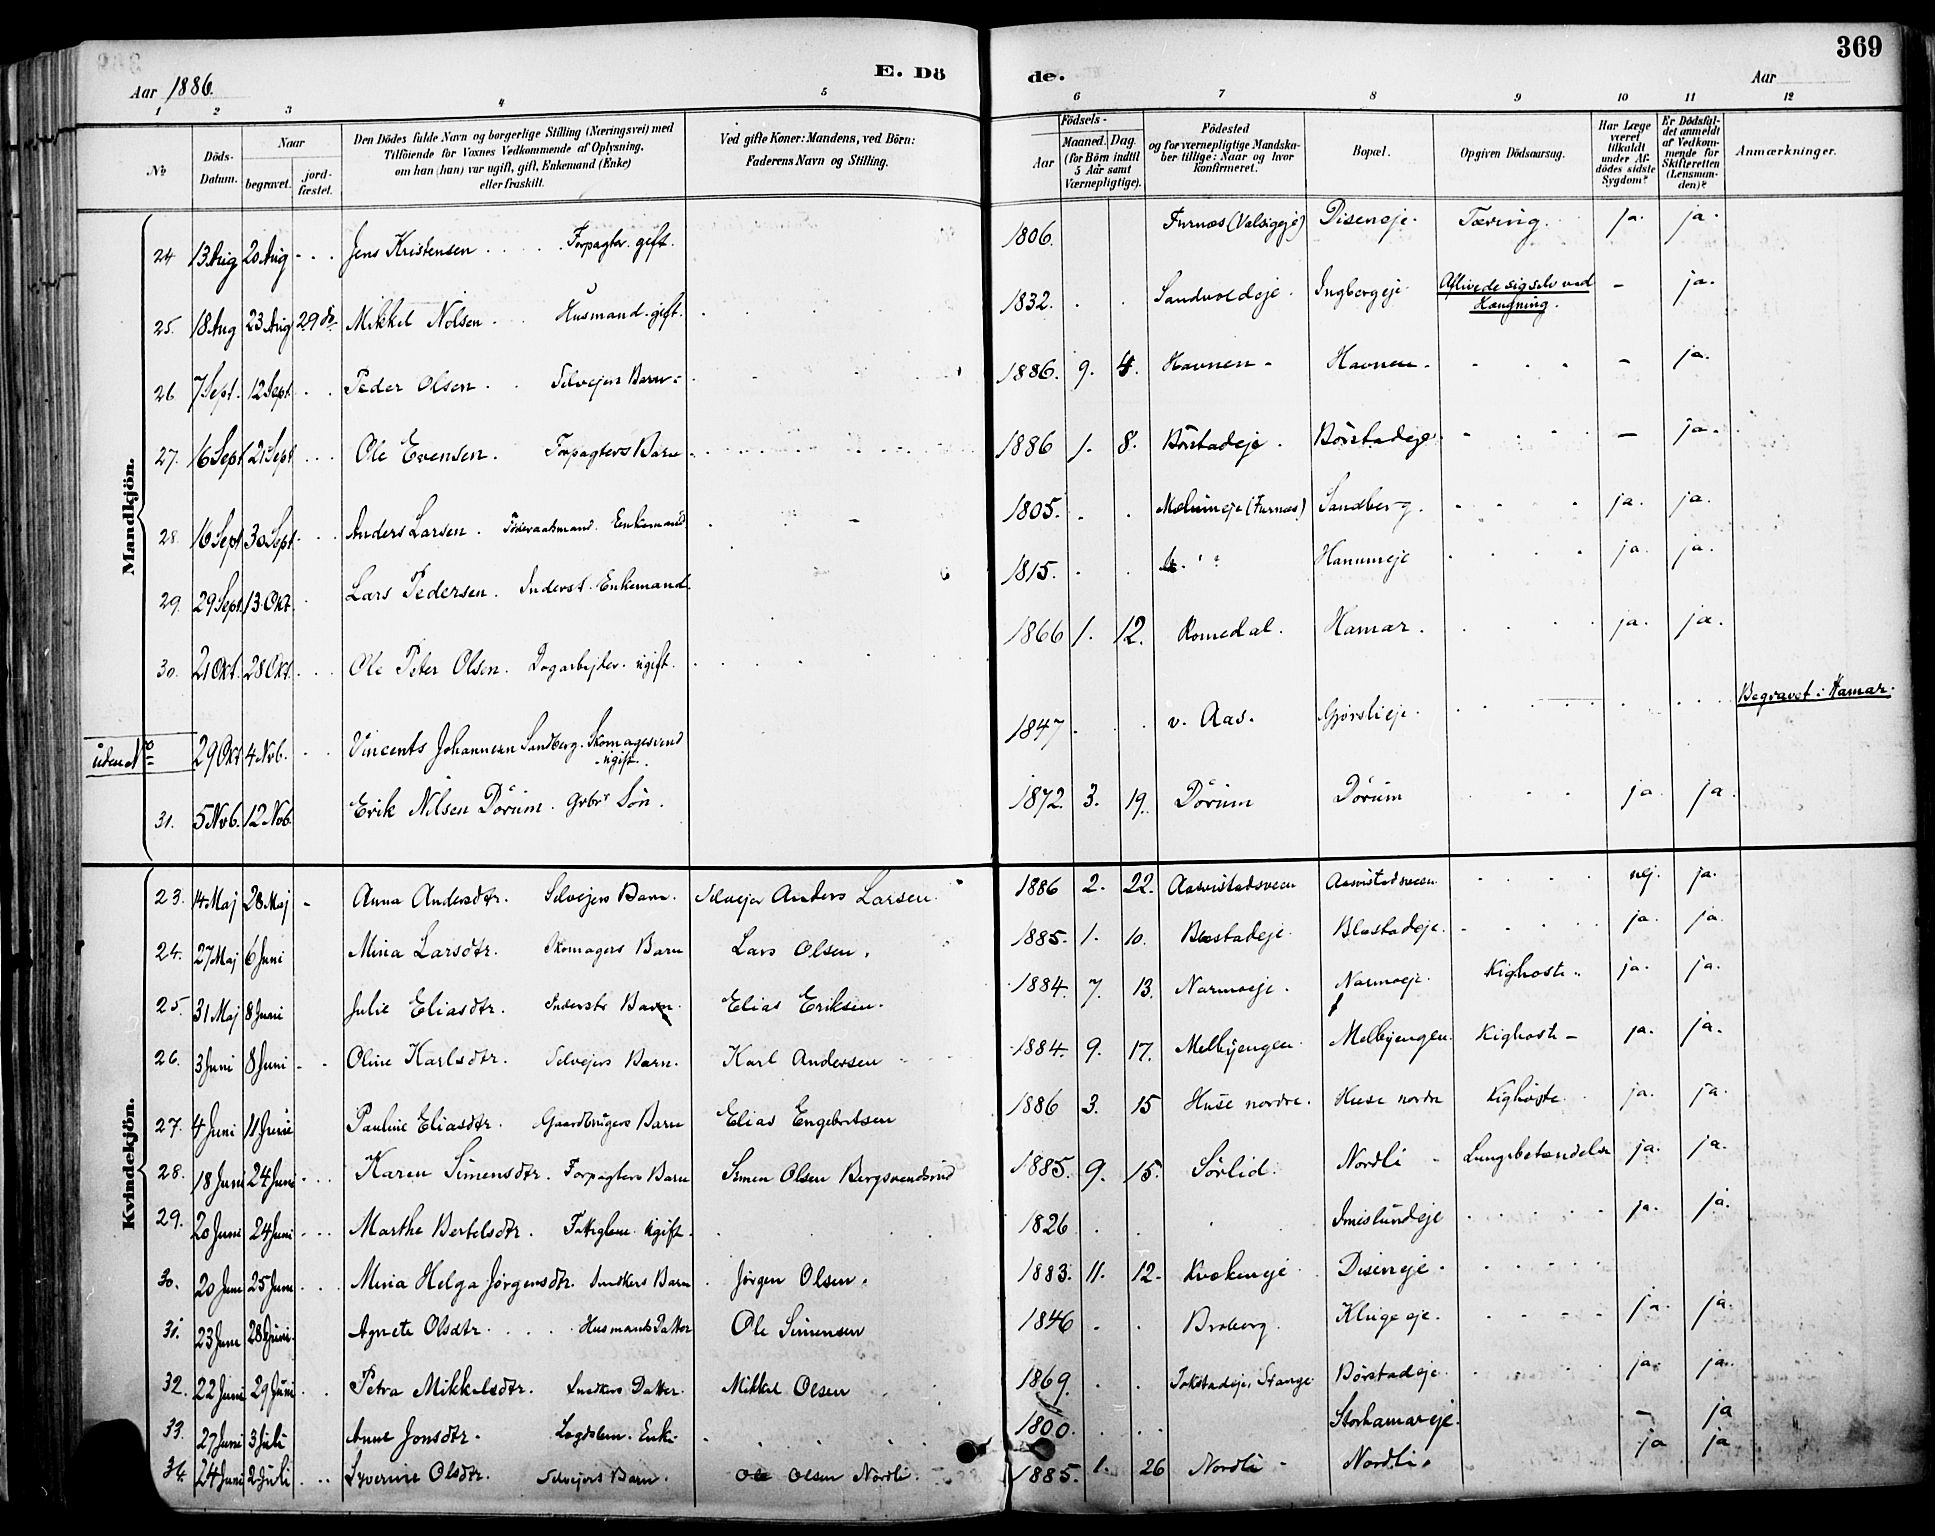 369
Aar 1886.
E. Dö
de.
Aar
1 2 3 4 5 6 7 8 9 10 11 12
No
Döds-Datum.
Naar
begravet.
jord-fæstet.
Den Dödes fulde Navn og borgerlige Stilling (Næringsvei) med
Tilföiende for Voxnes Vedkommende af Oplysning,
om han (hun) var ugift, gift, Enkemand (Enke)
eller fraskilt.
Ved gifte Koner: Mandens, ved Börn:
Faderens Navn og Stilling.
Födsels-
Aar
Maaned. Dag.
(for Börn indtil
5 Aar samt
Værnepligtige).
Födested
og for værnepligtige Mandska-
ber tillige: Naar og hvor
konfirmeret.
Bopæl.
Opgiven Dödsaarsag.
Har Læge
været
tilkaldt
under Af-
dödes sidste
Sygdom?
Er Dödsfal-
det anmeldt
af Vedkom-
mende for
Skifteretten
(Lensman-
den)?
Anmærkninger.
Mandkjön.
24 13 Aug 20 Aug Jens Kristensen Forpagter gift. 1806. Furnæs (Valsigeje) Diseneje. Tæring. ja. ja.
25. 18 Aug 23 Aug 29 do Mikkel Nilsen Husmand gift. 1832. Sandvoldeje. Ingbergeje Aflivede sig selv ved Hængning. - ja.
26 7 Sept. 12 Sept. Peder Olsen. Selvejers Barn 1886. 9. 4. Havnen Havnen. - ja.
27. 16 Sept 21 Sept Ole Evensen. Forpagters Barn 1886 1. 8. Börstadeje. Börstadeje. - ja.
28. 16 Sept 30 Sept Anders Larsen. Enkemand 1805. (Furnæs) Sandberg. ja. ja.
29. 29 Sept. 13 Okt. Lars Pedersen. Inderst. Enkemand. 1815. ja. ja.
30. 21 Okt. 28 Okt. Ole Peter Olsen. Dagarbejder. ugift. 1866 1. 12. Romedal. Hamar. ja. ja.
uden No 29 Okt 4 Nvb. Vincents Johannesen Sandberg. Skomagersvend ugift. 1847 v. Aas. Gjörslieje. Begravet i Hamar.
31. 5 Nvb. 12 Nvb. Erik Nilsen Dörum. Gbrs Sön. 1872. 3. 19. Dörum Dörum ja ja.
Kvindekjön.
23. 14 Maj 28 Maj Anna Andersdtr. Selvejers Barn. Selvejer Anders Larsen. 1886 2. 22. Aasvistadsveen Aasvistadsveen nej. ja.
24. 27 Maj 6 Juni Mina Larsdtr. Skomagers Barn Lars Olsen. 1885. 1. 10. Blæstadeje. Blæstadeje. ja. ja.
25. 31 Maj 8 Juni Julie Eliasdtr. Inderste Barn. Elias Eriksen. 1884. 7. 13. Narmoeje. Narmoeje. Kighoste. ja. ja.
26. 3 Juni 8 Juni Oline Karlsdtr. Selvejers Barn. Karl Andersen 1884. 9. 17. Melbyengen Melbyengen. Kighoste ja. ja.
27. 4 Juni 11 Juni Pauline Eliasdtr. Gaardbrugers Barn Elias Engebretsen 1886 3. 15 Huse nordre. Huse nordre Kighoste ja. ja.
28. 18 Juni 24 Juni Karen Simensdtr. Forpagters Barn Simen Olsen Bergsvendsrud 1885. 9. 15. Sörlid. Nordli Lungebetændelse ja. ja.
29. 20 Juni 24 Juni Marthe Bertelsdtr. Fattiglem. ugift. 1826 Imislundeje ja. ja.
30. 20 Juni 25 Juni Mina Helga Jörgensdtr. Snedkers Barn Jörgen Olsen. 1883. 11. 12. Kvækeneje Diseneje.
31. 23 Juni 28 Juni. Agnete Olsdtr. Husmands Datter Ole Simensen 1846 Broberg. Klugeeje. ja. ja.
32. 22 Juni 29 Juni Petra Mikkelsdtr. Snedkers Datter. Mikkel Olsen 1869. Stange Börstadeje. ja. ja.
33. 27 Juni 3 Juli Anne Jonsdtr. Lægdslem. Enke 1800. Storhamareje. - ja
34. 24 Juni 2 Juli Syverine Olsdtr. Selvejers Barn. Ole Olsen Nordli. 1885. 1. 26 Nordli Nordli. ja ja